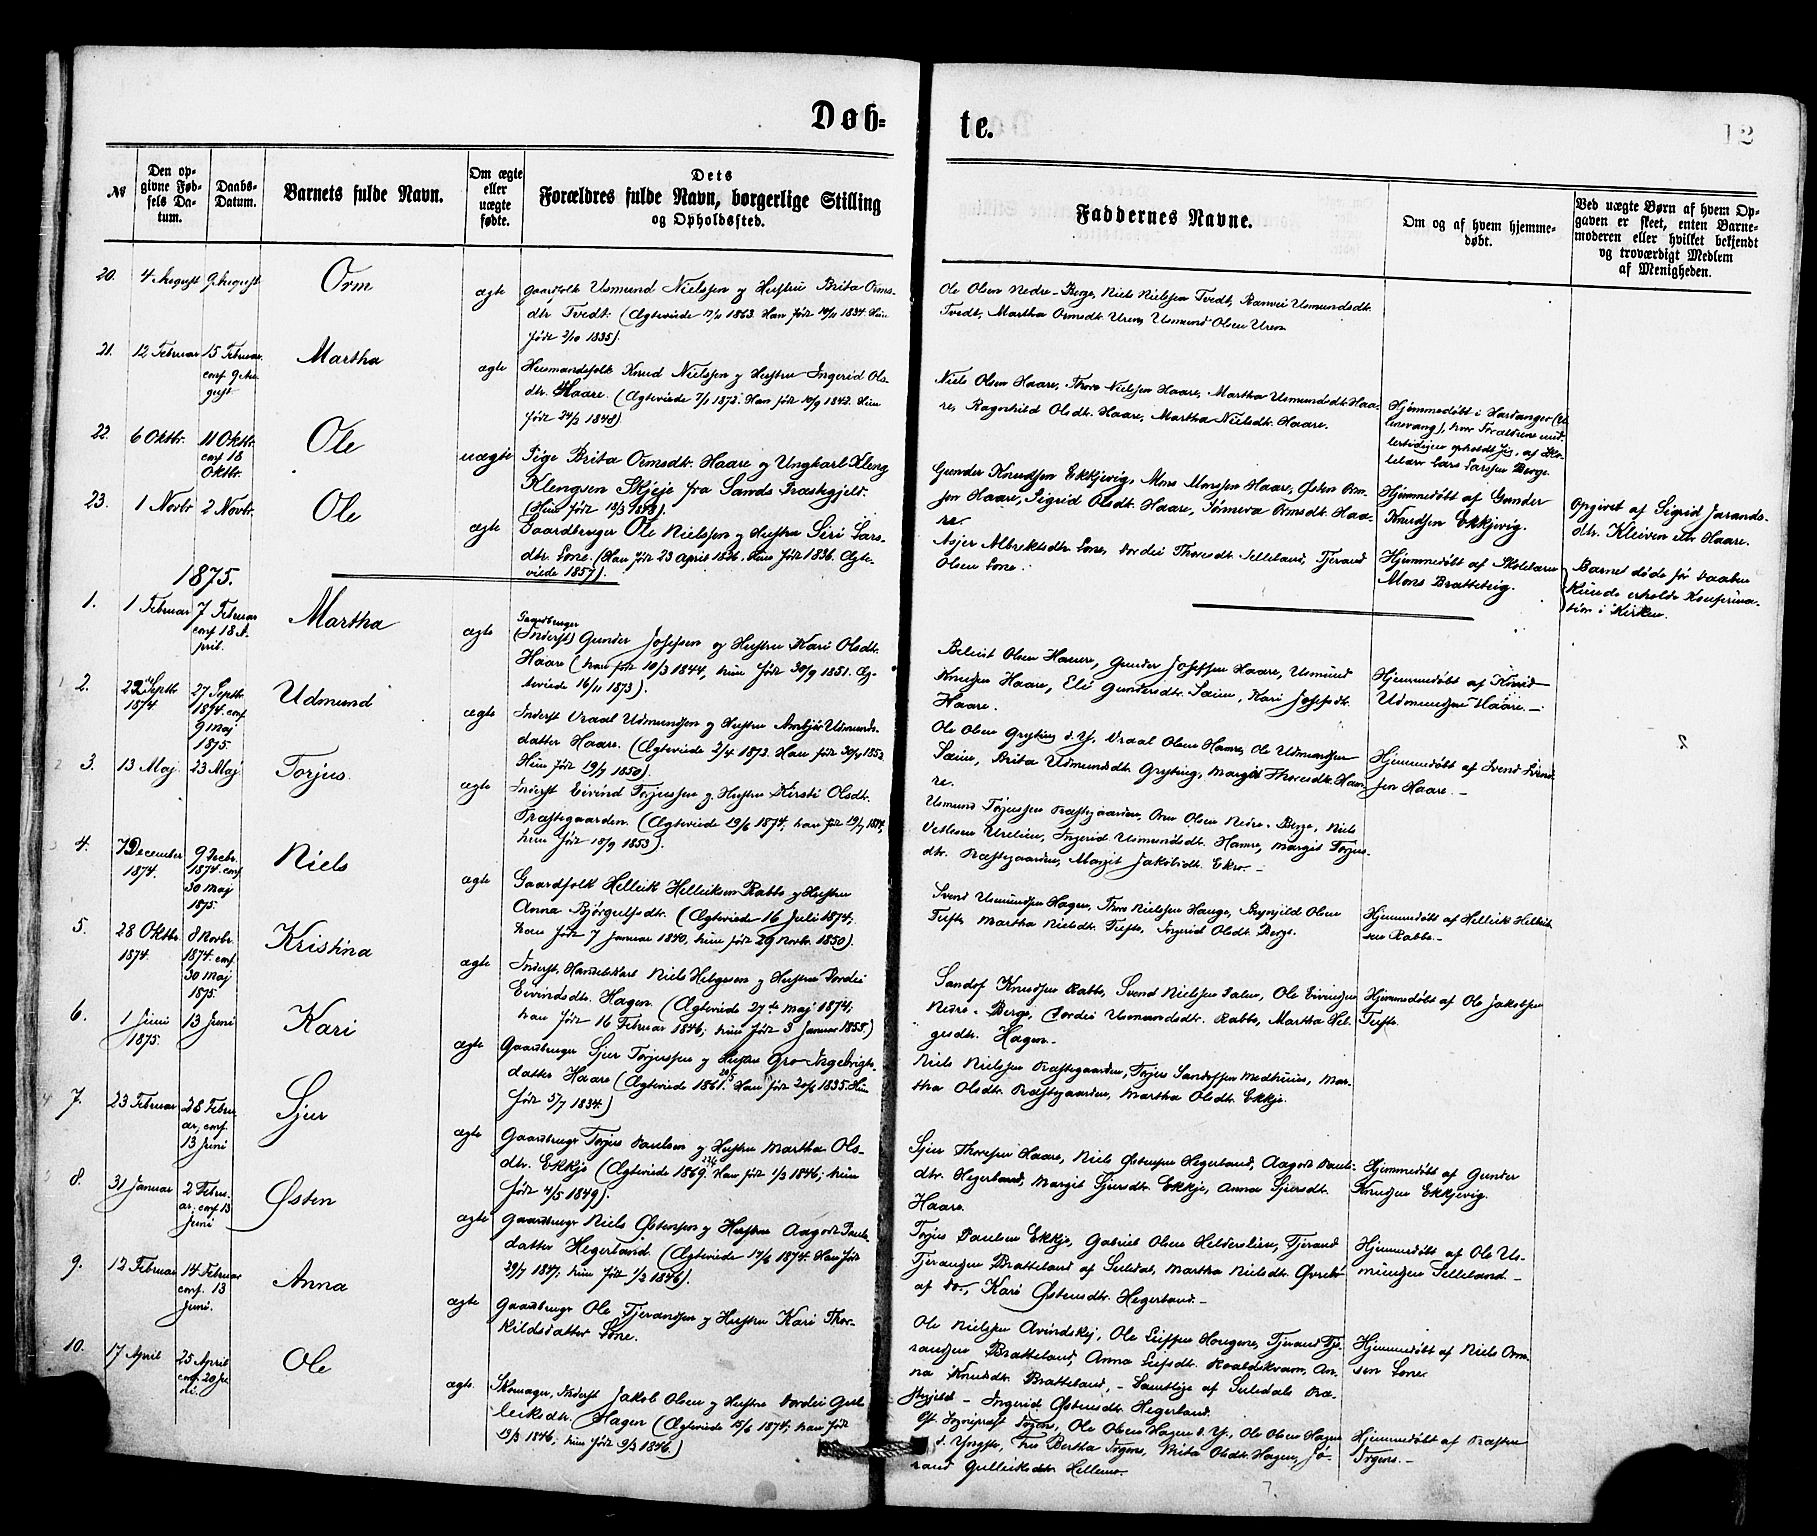 Døb-
te.
12
№
Den op-
givne Føb-
sels Da-
tum.
Daabs-
Datum.
Barnets fulde Navn.
Om ægte
eller
uægte
fødte.
Dets
Forældres fulde Navn, borgerlige Stilling
og Opholdssted.
Faddernes Navne.
Om og af hvem hjemme-
døbt.
Ved uægte Børn af hvem Op-
gaven er skeet, enten Barne-
moderen eller hvilket bekjendt
og troværdigt Medlem
af Menigheden.
20.
4 August
9 August
Orm
ægte
Gaardfolk Usmund Nielssen og Hustru Brita Orms-
dtr Tvedt. (Ægteviede 17/11 1863. Han født 14/11 1834. Hun
født 2/10 1835).
Ole Olsen Nedre-Berge, Niels Nielsen Tvedt, Ranvei Usmundsdt.
Tvedt, Martha Ormsdt. Uren, Usmund Olsen Uren
21.
12 Februar
15 Februar
conf 9 Au-
gust
Martha
ægte
Husmandsfolk Knud Nielssen og Hustru Ingerid Ols-
dtr. Haare. (Ægteviede 7/1 1873. Han født 10/9 1842. Hun
født 24/3 1848)
Niels Olsen Haare, Thore Nielsen Haare, Martha Usmundsdt. Haa-
re, Ragnhild Olsdt. Haare, Martha Nielsdt. Haare.
Hjemmedøbt i Hardanger (Ul-
lensvang), hvor Forældrene mid-
lertidigen opholdt sig, af Sko-
lelærer Lars Larssen Berge.
22.
6 Oktbr.
11 Oktbr.
conf 18
Oktbr.
Ole
uægte
Pige Brita Ormsdt. Haare og Ungkarl Kleng
Klengsen Skjeje fra Sands Præstegjeld.
(Hun født 18/3 1848).
Gunder Knudsen Ekkjevig, Mons Monsen Haare, Østen Orm-
sen Haare, Sigrid Olsdt. Haare, Sønneva Ormsdt. Haa-
re.
Hjemmedøbt af Gunder
Knudsen Ekkjevig.
Opgivet af Sigrid Jarands-
dtr. Kleiven eller Haare.
23.
1 Novbr
2 Novbr.
Ole
ægte
Gaardbruger Ole Nielssen og Hustru Siri Lars-
dtr. Lone. (Han født 23 April 1826. Hun født 1836. Ægte-
viede 1857).
Asjer Albrektsdtr. Lone, Dordei Thoresdt. Selleland, Tjerand
Olsen Lone.
Hjemmedøbt af Skolelærer
Mons Bratteteig.
Barnet døde før Daaben
Kunde erholde Konfirma-
tion i Kirken.
1875.
1.
1 Februar
7 Februar
conf 18 A-
pril.
Martha
ægte
Gaardbruger
(Inderst) Gunder Josefsen og Hustru Kari Olsdt.
Haare (han født 10/3 1844, hun født 30/9 1851. Æg-
teviede 16/11 1873).
Beleist Olsen Haare, Gunder Josefsen Haare, Usmund
Knudsen Haare, Eli Gundersdt. Saue, Kari Josefsdt.
Haare.
Hjemmedøbt af Knud
Udmundsen Haare.
2.
22 Septbr
1874
27 Septbr
1874. conf
9 Maj
1875.
Udmund
ægte
Inderst Vraal Udmundsen og Hustru Ambjør Udmunds-
datter Haare. (Ægteviede 2/4 1873. Han født 30/4 1853
Hun født 19/7 1850).
Ole Olsen Gryting d. Y. Vraal Olsen Hamre, Ole Udmundsen
Saue, Brita Udmundsdt. Gryting, Margit Thoresdt. Haa-
re.
Hjemmedøbt af Svend Svend-
sen Haare.
3.
13 Maj
23 Maj
Torjus
ægte
Inderst Eivind Torjussen og Hustru Kirsti Olsdt.
Præstegaarden. (Ægteviede 29/6 1874, han født 19/7 1854,
hun født 18/9 1853).
Usmund Torjussen Præstegaarden, Orm Olsen Nedre-Berge, Niels
Vetlesen Urelien, Ingerid Usmundsdt. Hamre, Margit Torjus-
dtr. Præstegaarden, Margit Jakobsdt. Ekro.
4.
7 December
1874.
9 Decbr.
1874 conf
30 Maj
1875.
Niels
ægte
Gaardfolk Helleik Helleiksen Rabbe og Hustru
Anna Bjørgulfsdtr. (Ægteviede 16 Juli 1874;
han født 7 Januar 1840, hun født 29 Novbr. 1850).
Svend Usmundsen Hagen, Thore Nielsen Hauge, Brynjild Olsen
Tufte, Martha Nielsdt. Tufte, Ingerid Olsdt. Berge.
Hjemmedøbt af Helleik Helleik-
sen Rabbe.
5.
28 Oktbr.
1874.
8 Novbr.
1874. conf
30 Maj
1875.
Kristina
ægte
Inderst, Handelskarl Niels Helgesen og Hustru Dordei
Eivindsdt. Hagen. (Ægteviede 27de Maj 1874,
han født 16 Februar 1846, hun født 3 Januar 1855)
Sandof Knudsen Rabbe, Svend Nielsen Dalen, Ole Eivindsen
Nedre-Berge, Dordei Usmundsdt. Rabbe, Martha Hel-
gesdt. Hagen.
Hjemmedøbt af Ole Jakobsen
Tufte.
6.
1 Juni
1875.
13 Juni
Kari
ægte
Gaardbruger Sjur Torjussen og Hustru Gro Ingebrigts-
datter Haare (Ægteviede 1861. Han født 20/2 1835. Hun
født 5/7 1834.)
Niels Nielsen Præstegaarden, Torjus Sandofsen Medhuus, Mar-
tha Olsdt. Præstegaarden, Martha Olsdt. Ekkje.
7.
23 Februar
28 Febru-
ar, conf.
13 Juni
Sjur
ægte
Gaardbruger Torjus Paulsen og Hustru Martha Ols-
dtr. Ekkje (Ægteviede 1869. Han født 1/3 1846; hun
født 4/5 1849).
Sjur Thoresen Haare, Niels Østensen Hegerland, Aagodt Pauls-
dtr. Hegerland, Margit Sjursdt. Ekkje, Anna Sjursdt.
Haare.
Hjemmedøbt af Gunder
Knudsen Ekkjevig.
8.
31 Januar
2 Febru-
ar, conf 13
Juni
Østen
ægte
Gaardbruger Niels Østensen og Hustru Aagodt Pauls-
datter Hegerland. (Ægteviede 17/6 1874. Han født
29/7 1847; hun født 1/3 1846).
Torjus Paulsen Ekkje, Gabriel Olsen Helderslien, Tjerand
Tjerandsen Bratteland af Suledal, Martha Nielsdt. Øvrebø
af do., Kari Østensdtr. Hegerland.
Hjemmedøbt af Ole Us-
mundsen Selleland.
9.
12 Februar
14 Februar
conf. 13
Juni.
Anna
ægte
Gaardbruger Ole Tjerandsen og Hustru Kari Thor-
kildsdatter Lone.
Ole Nielsen Avindskej, Ole Leifsen Haugen, Tjerand Tje-
randsen Bratteland, Anna Leifsdt. Roaldskvam, An-
na Knudsdt. Bratteland, - Samtlige af Suledals Præ-
stegjeld - Ingerid Østensdtr. Hegerland.
Hjemmedøbt af Niels Orm-
sen Lone.
10.
17 April
25 April
conf. 20 Ju-
ni.
Ole
ægte.
Skomager, Inderst Jakob Olsen og Hustru Dordei Gul-
leiksdtr. Hagen (Ægteviede 15/6 1874; han født
19/3 1846; hun født 9/3 1846.)
Sognepræst Torgens, Ole Olsen Hagen d. Y., Ole Olsen Hagen
d. Yngste, Fru Bertha Torgens, Brita Olsdt. Hagen, Jø-
rand Gulleiksdtr. Hellemo.
Hjemmedøbt af Præsten
Torgens.